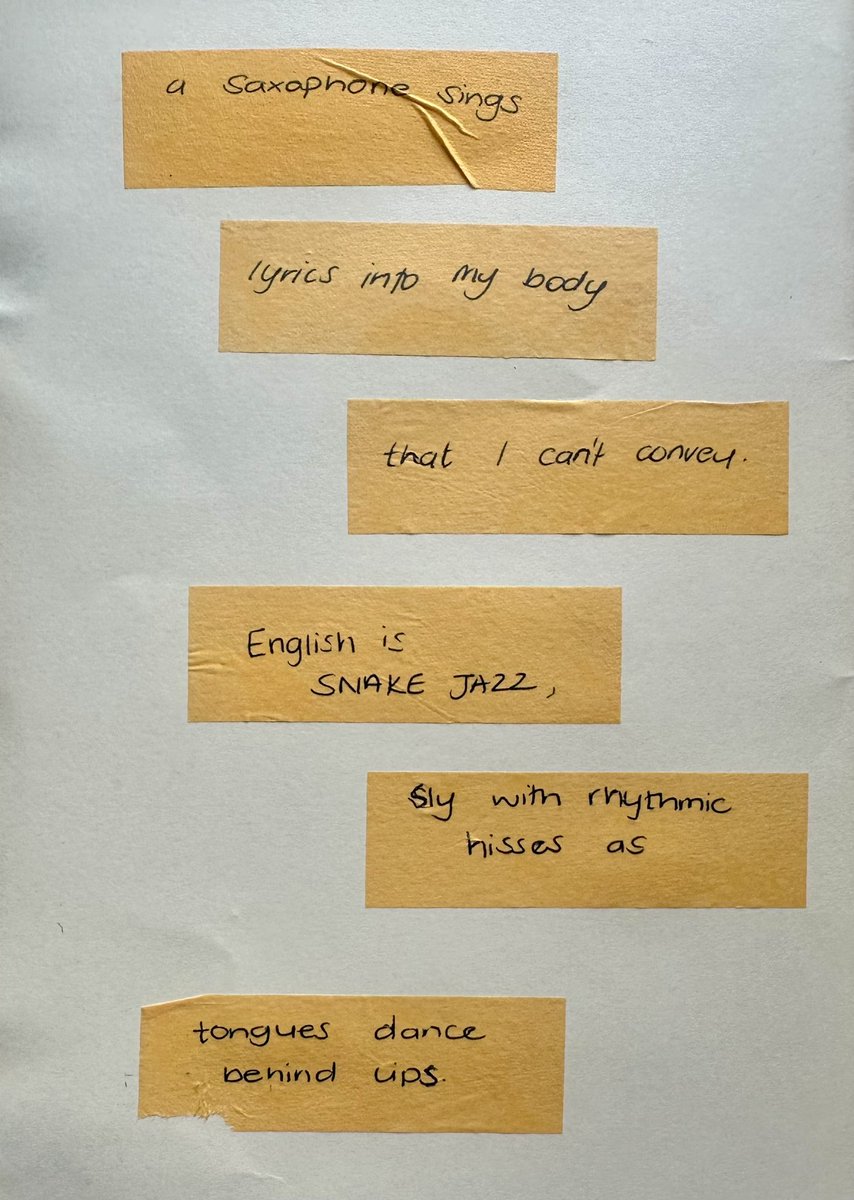 a saxaphone sings
lyrics into my body
that I can't convey.
English is
SNAKE JAZZ,
sly with rhythmic
hisses as
tongues dance
behind lips.